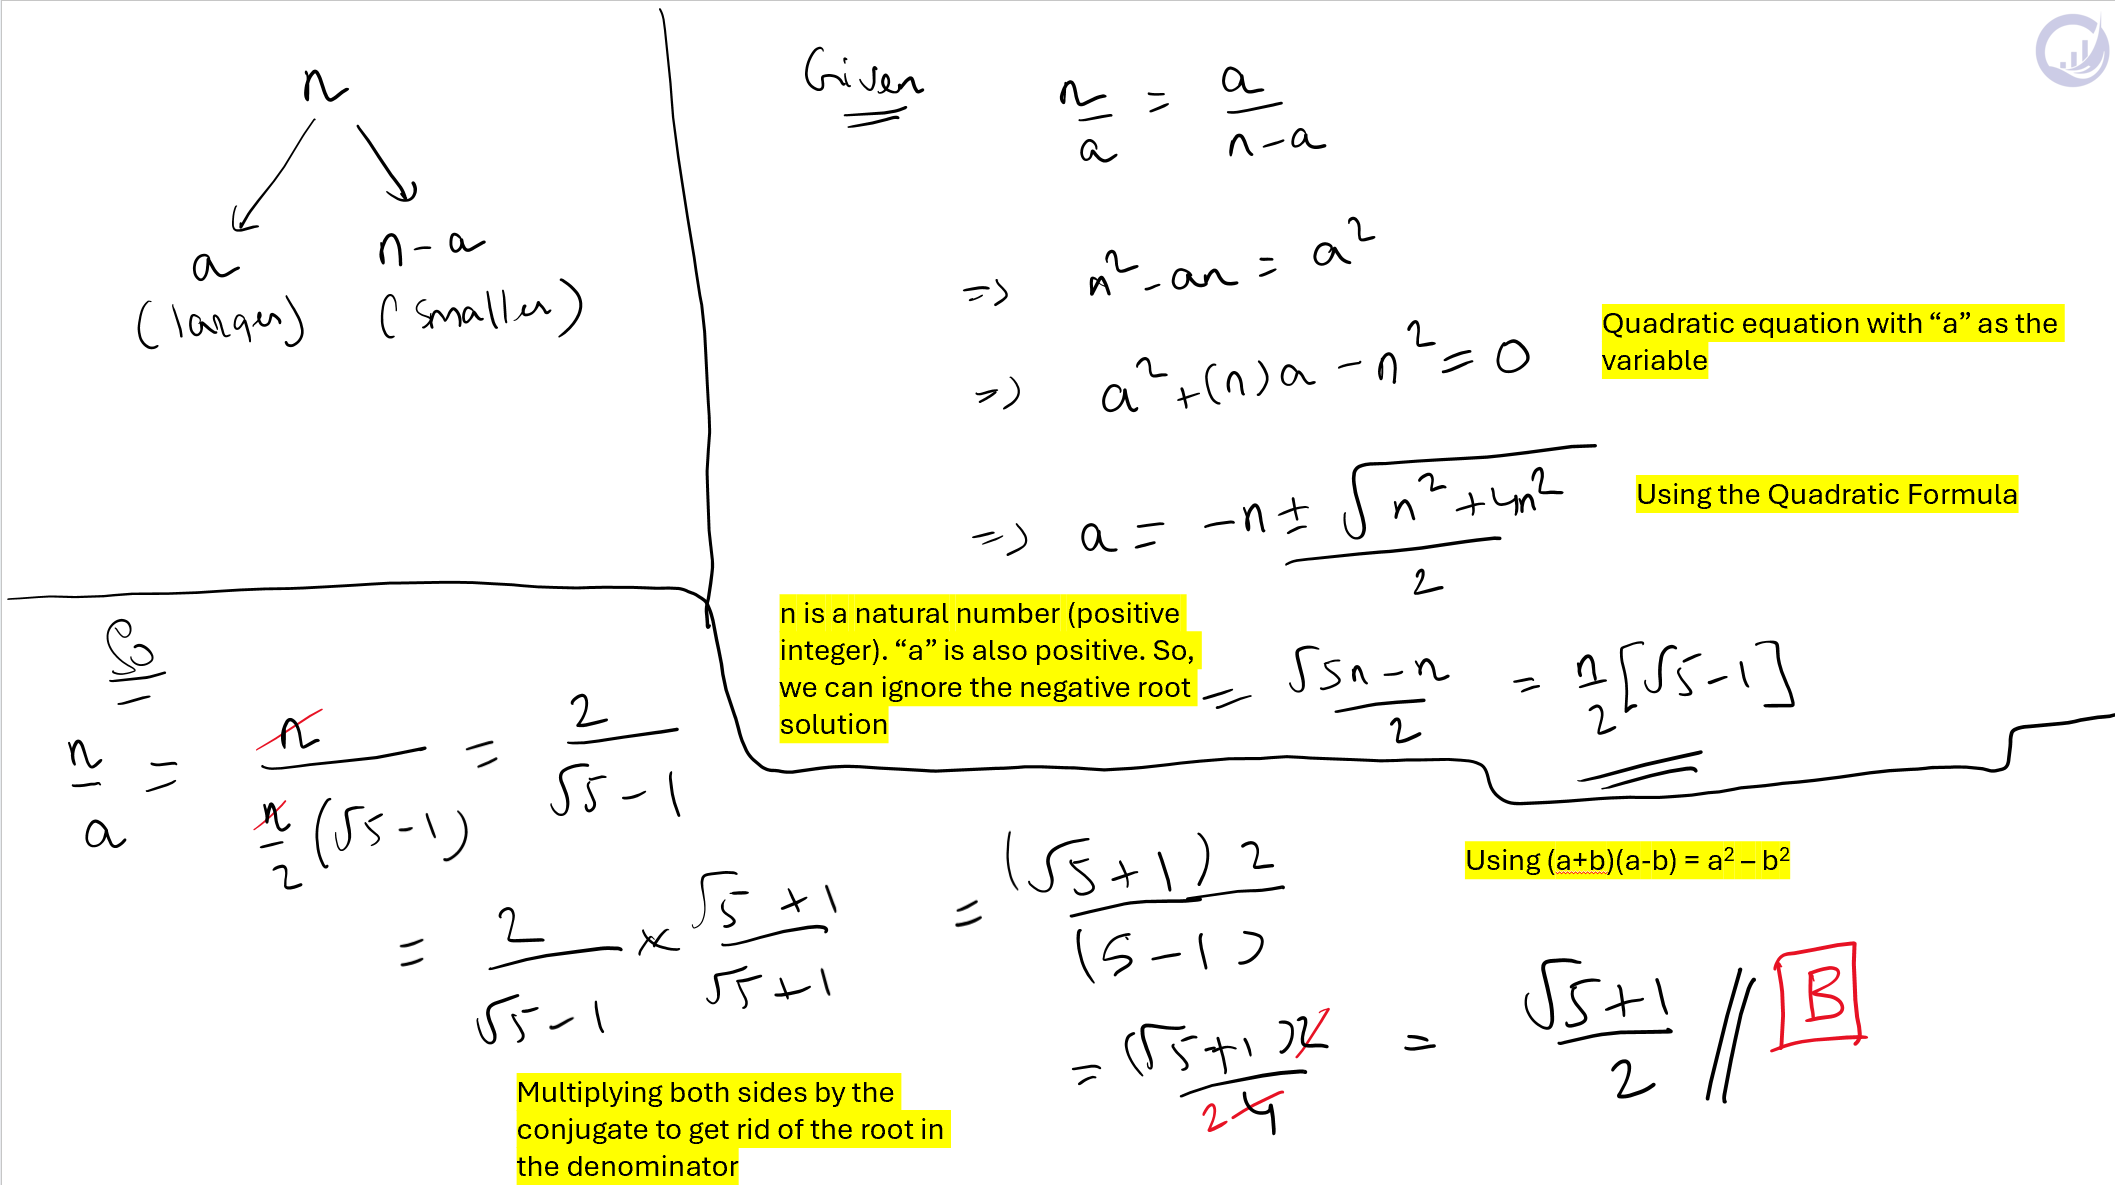 n
a
n - a
(larger)
(smaller)
Given
n/a = a/(n-a)
=> n² - an = a²
=> a² + (n)a - n² = 0
Quadratic equation with “a” as the
variable
=> a = -n ± √(n² + 4n²) / 2
Using the Quadratic Formula
n is a natural number (positive
integer). “a” is also positive. So,
we can ignore the negative root
solution
= (√5n - n)/2 = n/2 [√5 - 1]
So
n/a = n / (n/2 (√5 - 1)) = 2/(√5 - 1)
= 2/(√5 - 1) × (√5 + 1)/(√5 + 1) = (√5 + 1) 2 / (5 - 1)
Using (a+b)(a-b) = a² – b²
= (√5 + 1) 2 / 4 2 = (√5 + 1)/2 // B
Multiplying both sides by the
conjugate to get rid of the root in
the denominator